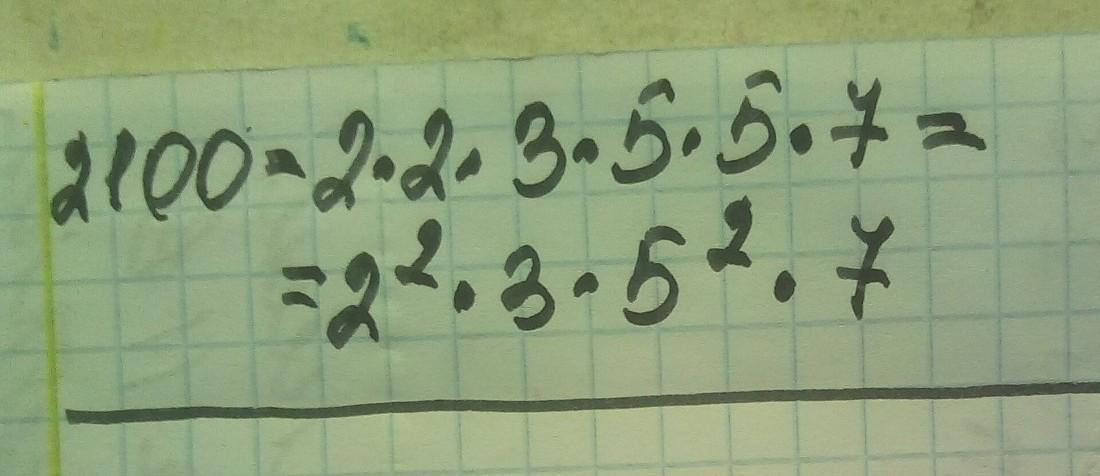 2100=2·2·3·5·5·7=
=2²·3·5²·7